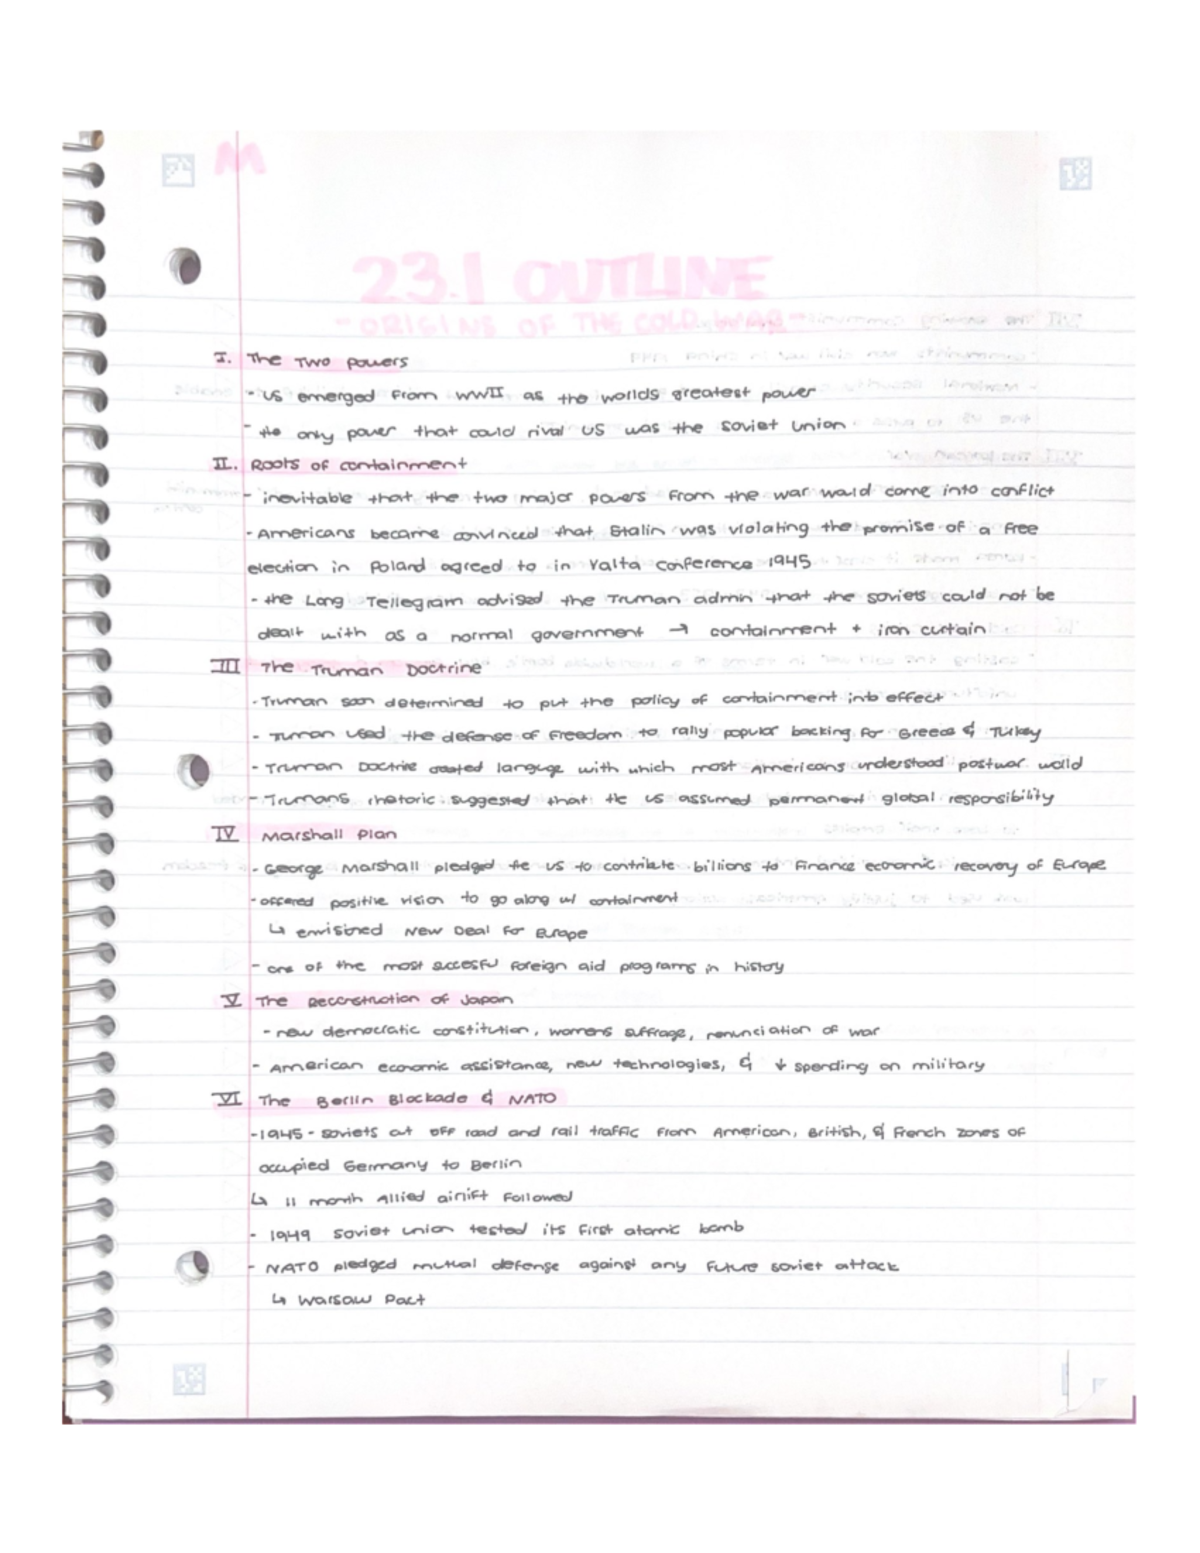 M
23.1 OUTLINE
- ORIGINS OF THE COLD WAR -
I. The Two Powers
- US emerged from WWII as the worlds greatest power
- the only power that could rival US was the Soviet Union
II. Roots of containment
- inevitable that the two major powers from the war would come into conflict
- Americans became convinced that Stalin was violating the promise of a free
election in Poland agreed to in Yalta Conference 1945
- the Long Tellegram advised the Truman admin that the soviets could not be
dealt with as a normal government → containment + iron curtain
III The Truman Doctrine
- Truman soon determined to put the policy of containment into effect
- Truman used the defense of freedom to rally popular backing for Greece & Turkey
- Truman Doctrine created languge with which most Americans understood postwar world
- Trumans rhetoric suggested that the US assumed permanent global responsibility
IV Marshall Plan
- George Marshall pledged the US to contribute billions to finance economic recovery of Europe
- offered positive vision to go along w/ containment
↳ envisioned New Deal for Europe
- one of the most succesful foreign aid programs in history
V The Reconstruction of Japan
- new democratic constitution, womens suffrage, renunciation of war
- American economic assistance, new technologies, & ↓ spending on military
VI The Berlin Blockade & NATO
- 1945 - Soviets cut off road and rail traffic from American, British, & French zones of
occupied Germany to Berlin
↳ 11 month Allied airlift followed
- 1949 Soviet Union tested its first atomic bomb
- NATO pledged mutual defense against any future soviet attack
↳ Warsaw Pact